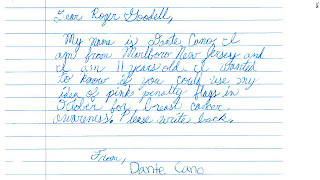 Dear Roger Goodell,
My name is Dante Cano. I
am from Marlboro New Jersey and
I am 11 years old. I wanted
to know if you could use my
idea of pink penalty flags in
October for breast cancer
awareness. Please write back.
From,
Dante Cano